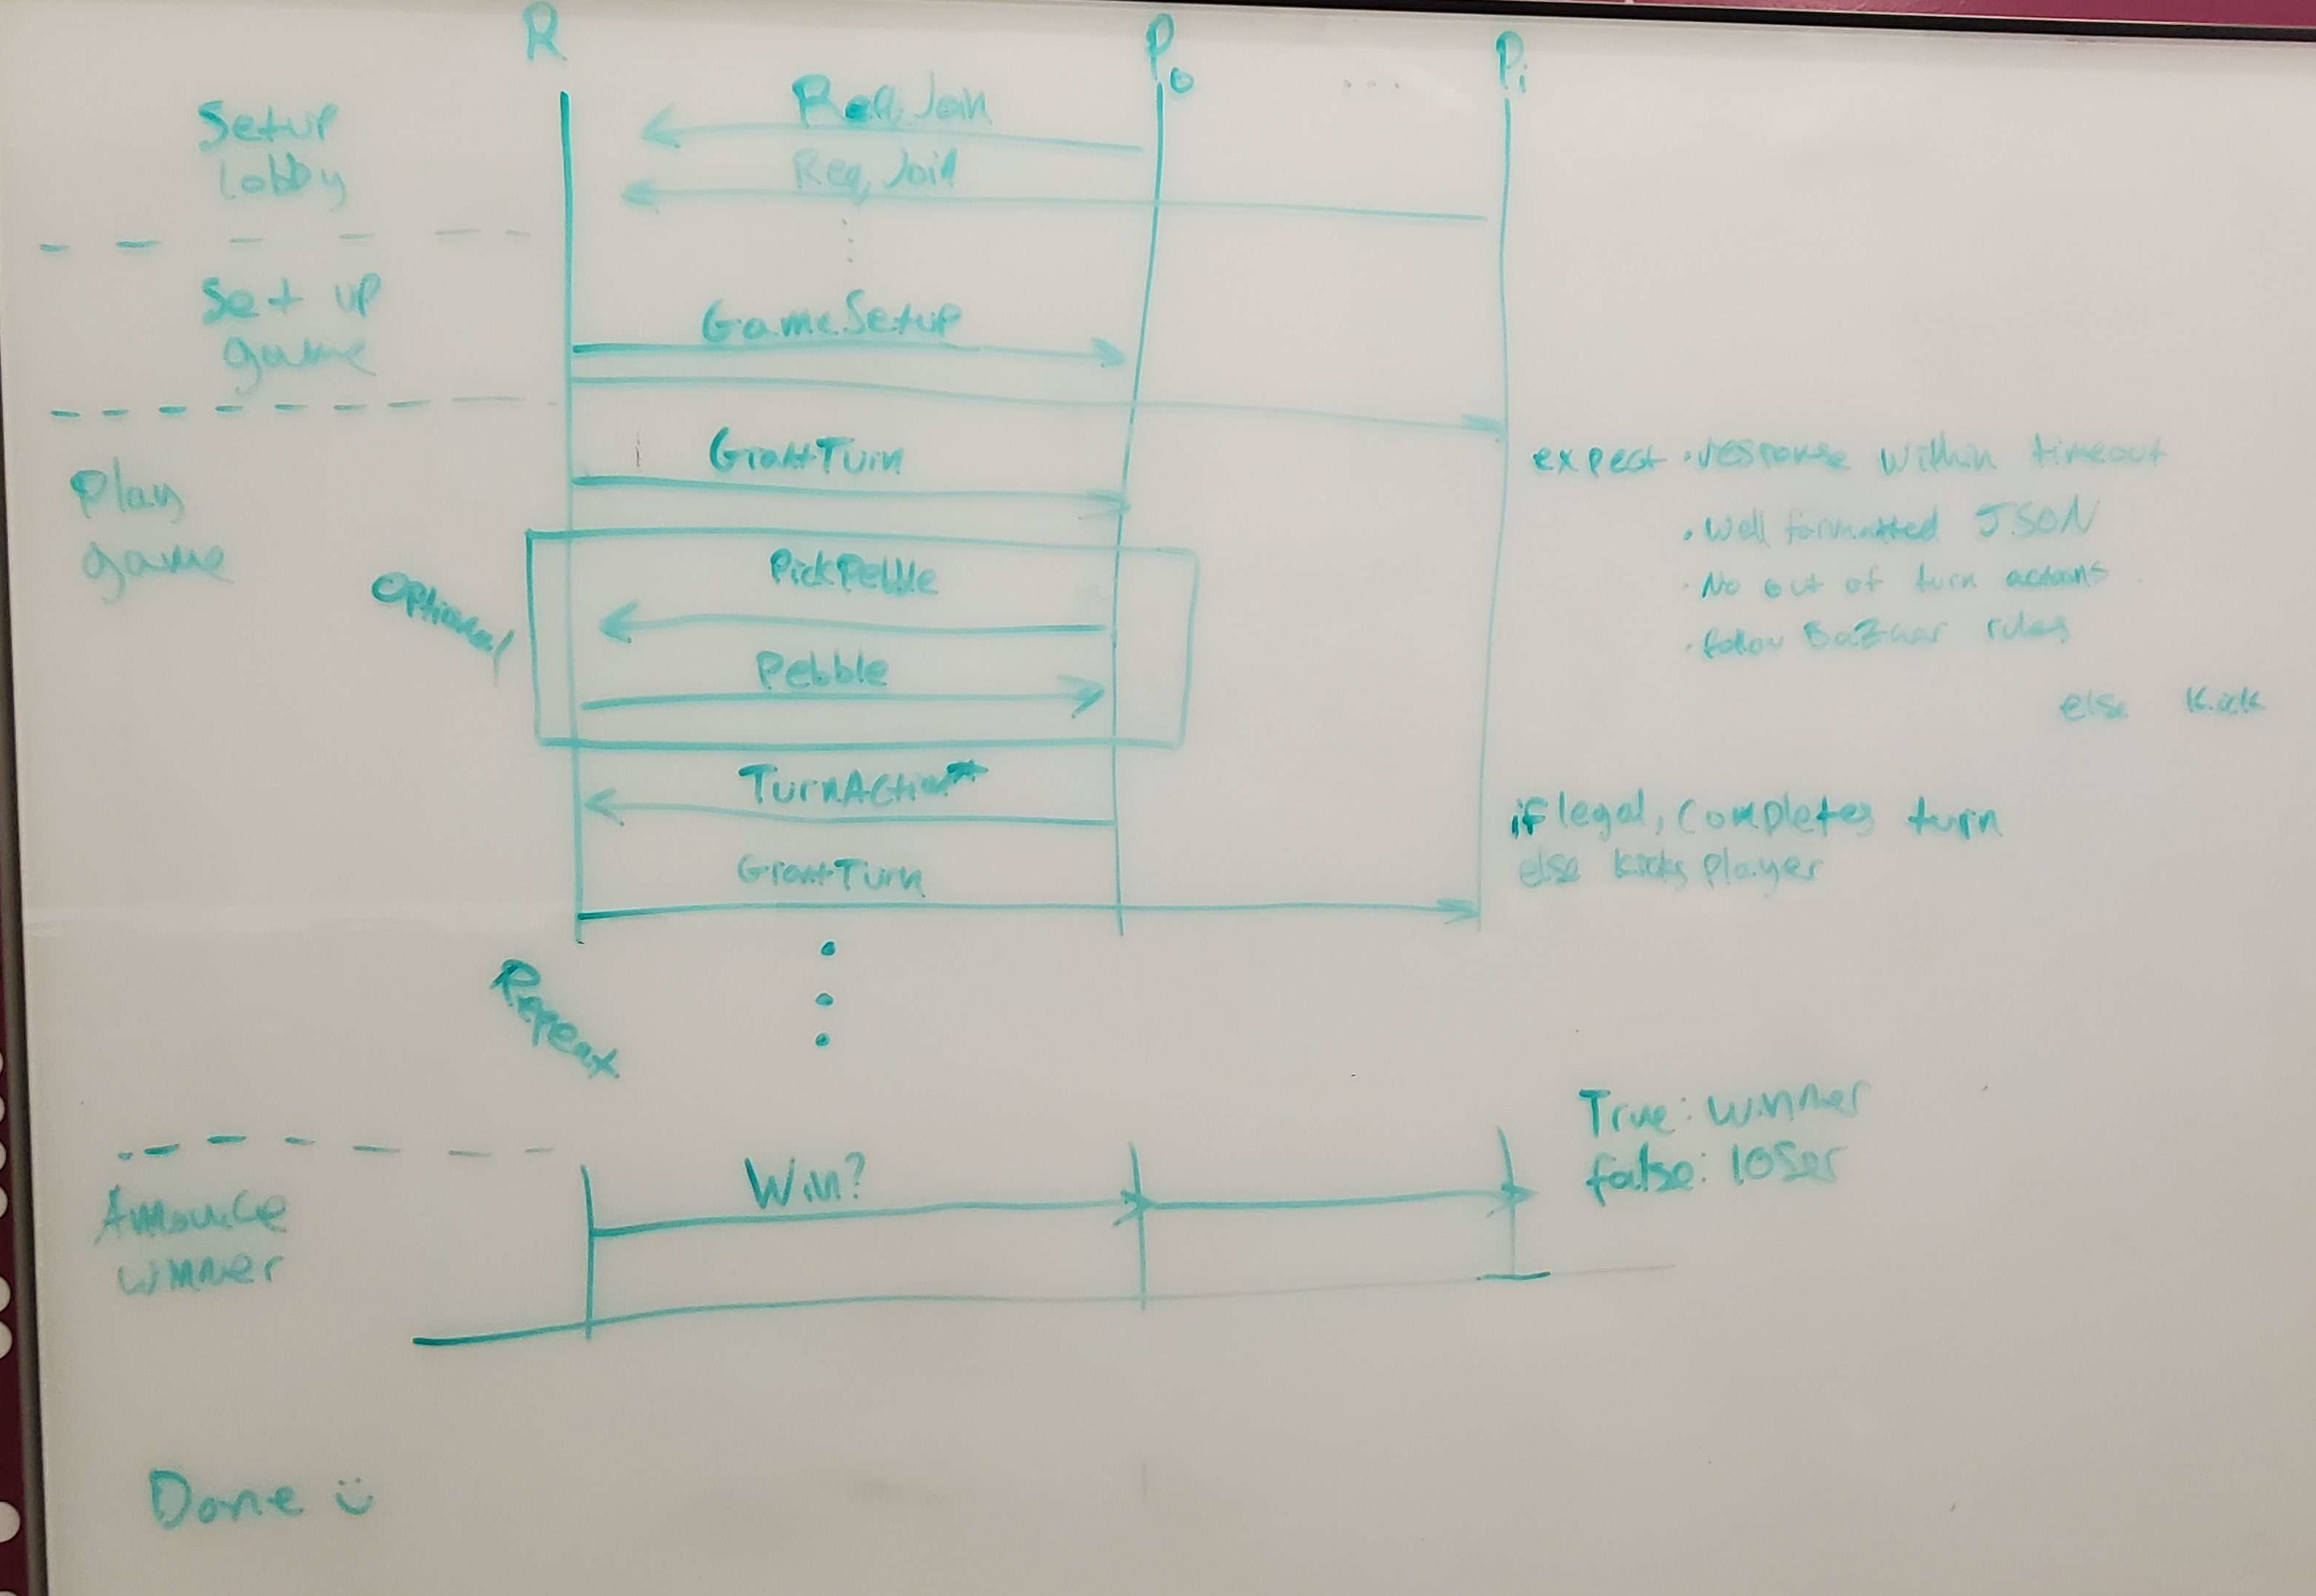 R
P0
...
Pi
Setup
lobby
Req Join
Req Join
Set up
game
GameSetup
Play
game
GrantTurn
expect · response within timeout
· Well formatted JSON
· No out of turn actions
· follow Bazaar rules
else kick
Optional
PickPebble
Pebble
TurnAction*
if legal, completes turn
else kicks player
GrantTurn
Repeat
Announce
winner
Win?
True: winner
false: loser
Done :)